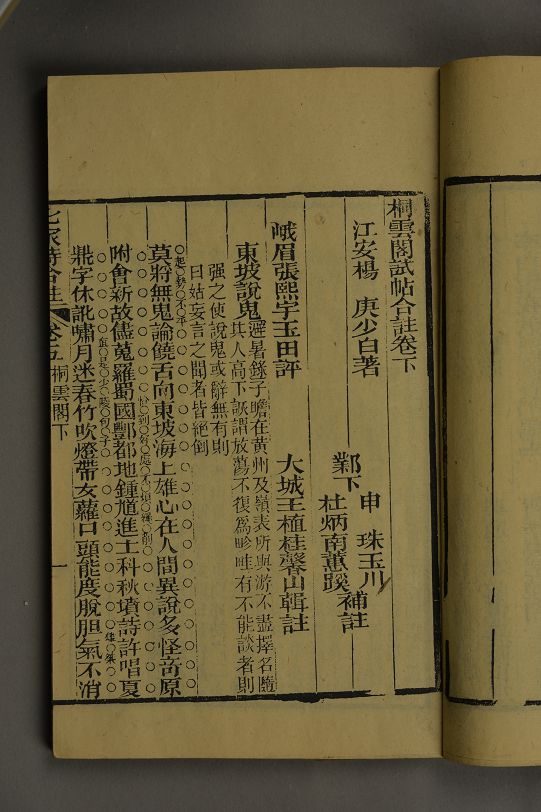 桐雲閣試帖合註卷下
江安楊 庚少白著
鄴下 申 珠玉川
杜炳南蕙蹊 補註
峨眉張熙宇玉田評
大城王植桂馨山輯註
東坡說鬼 避暑錄子瞻在黃州及嶺表所與游不盡擇名隨
其人高下詼謔放蕩不復爲畛畦有不能談者則
强之使說鬼或辭無有則
曰姑妄言之聞者皆絕倒
莫將無鬼論饒舌向東坡海上雄心在人間異說多怪奇原
附會新故儘蒐羅蜀國酆都地鍾馗進士科秋墳詩許唱夏
鼎字休訛嘯月迷春竹吹燈帶女蘿口頭能度脫胆氣不消
七家詩合註 卷五 桐雲閣下 一